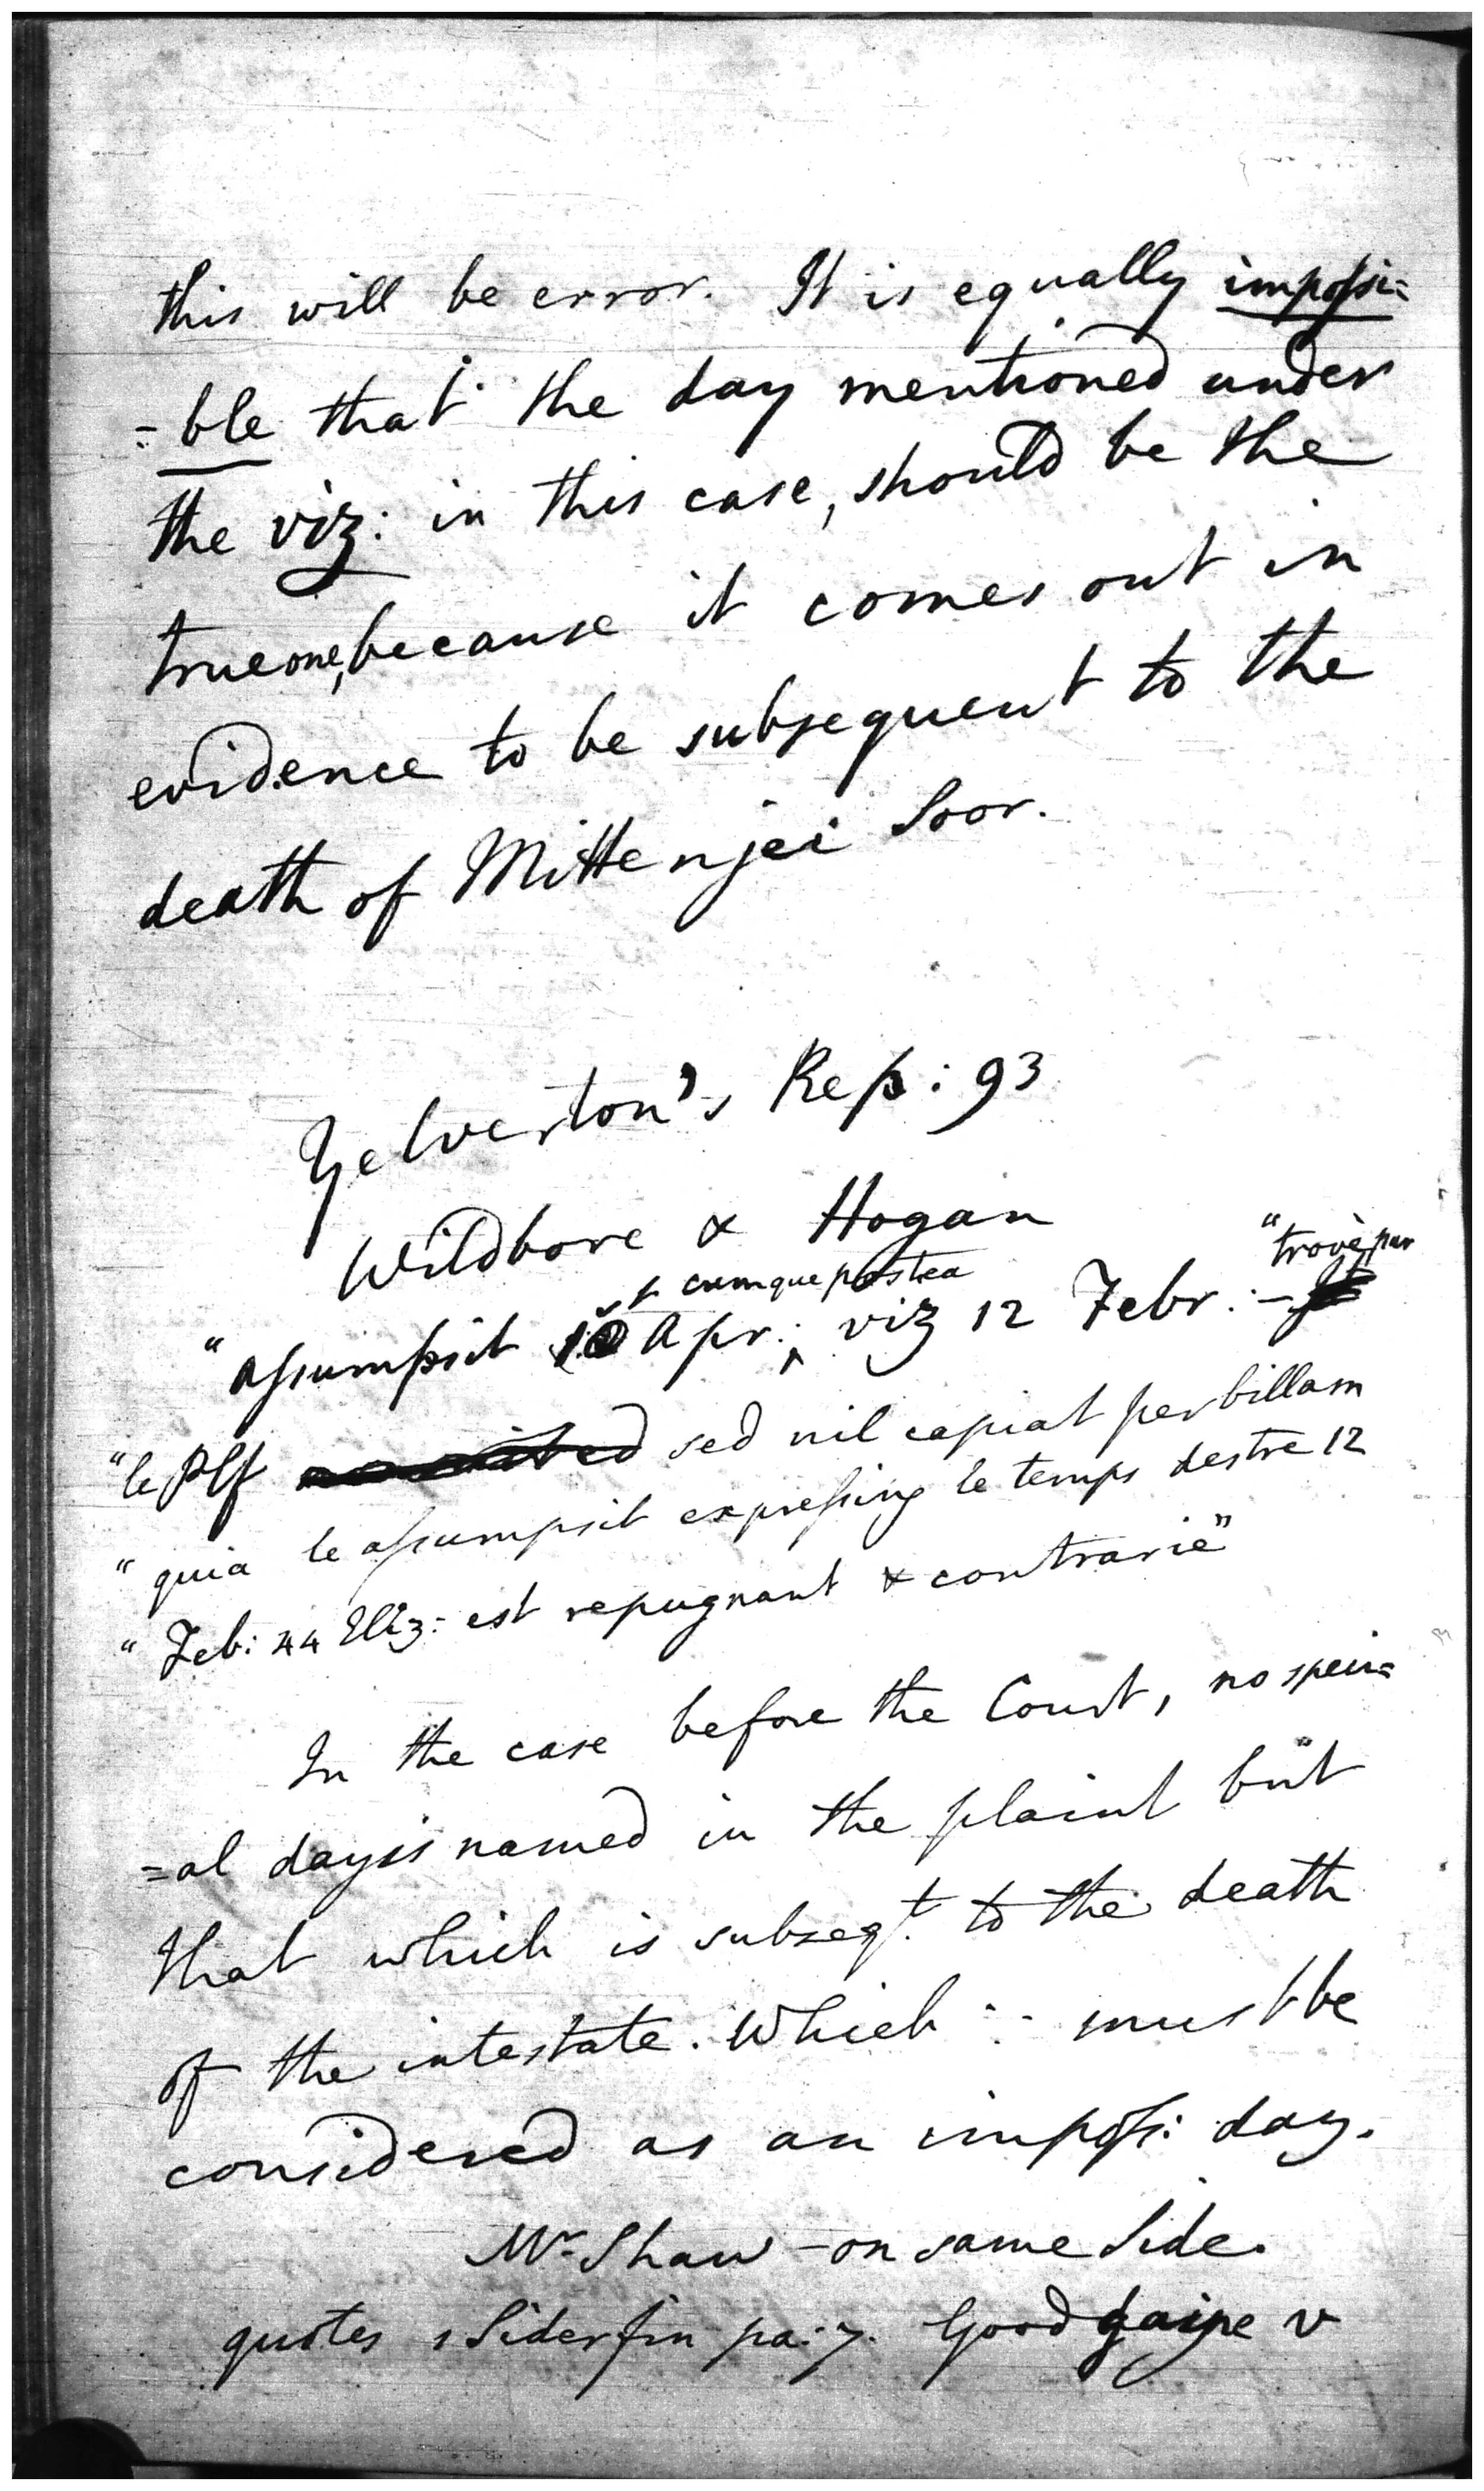 this will be error. It is equally impossi=
=ble that the day mentioned under
the viz: in this case, should be the
true one, because it comes out in
evidence to be subsequent to the
death of Mittenjei Soor.
Yelverton's Rep: 93
Wildbore & Hogan
"trové par
cumque postea
"assumpsit Apr:, viz 12 Febr: -
"le Plf sed nil capiat per billam
"quia le assumpsit expressing le temps destre 12
"Feb: 44 Eliz: est repugnant & contrarie"
In the case before the Court, no speci=
=al day is named in the plaint but
that which is subseqt. to the death
of the intestate. Which ∴ must be
considered as an imposs: day.
Mr Shaw - on same Side.
quotes 1 Siderfin pa: 7. Good gaine v